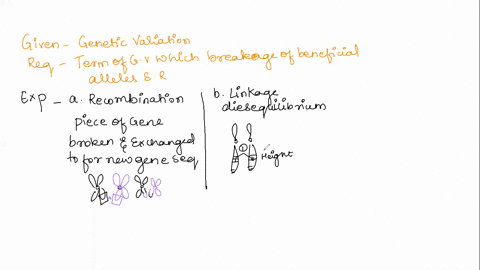 Given - Genetic Variation
Req - Term of G.V which breakage of beneficial
alleles S R
Exp - a. Recombination
piece of Gene
broken & Exchanged
to for new gene seq
b. Linkage
diesequilibrium
Height